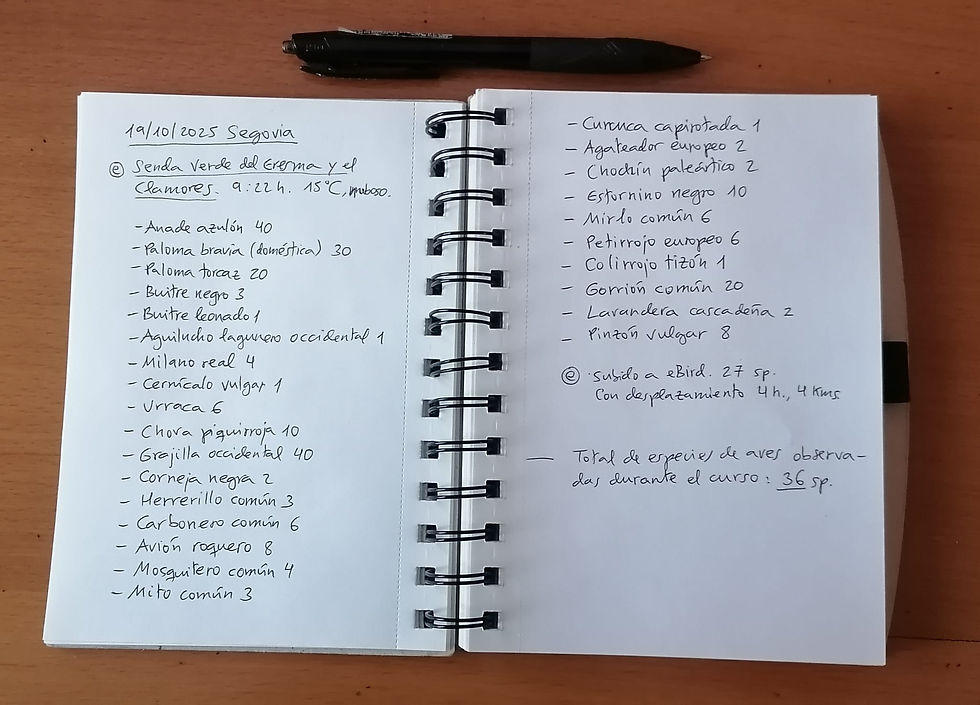 19/10/2025 Segovia
ⓔ Senda Verde del Eresma y el
Clamores. 9:22 h. 15°C, nuboso.
- Anade azulón 40
- Paloma bravía (doméstica) 30
- Paloma torcaz 20
- Buitre negro 3
- Buitre leonado 1
- Aguilucho lagunero occidental 1
- Milano real 4
- Cernícalo vulgar 1
- Urraca 6
- Chova piquirroja 10
- Grajilla occidental 40
- Corneja negra 2
- Herrerillo común 3
- Carbonero común 6
- Avión roquero 8
- Mosquitero común 4
- Mito común 3
- Curruca capirotada 1
- Agateador europeo 2
- Chochín paleártico 2
- Estornino negro 10
- Mirlo común 6
- Petirrojo europeo 6
- Colirrojo tizón 1
- Gorrión común 20
- Lavandera cascadeña 2
- Pinzón vulgar 8
ⓔ Subido a eBird. 27 sp.
Con desplazamiento 4 h., 4 Kms
— Total de especies de aves observa-
das durante el curso: 36 sp.